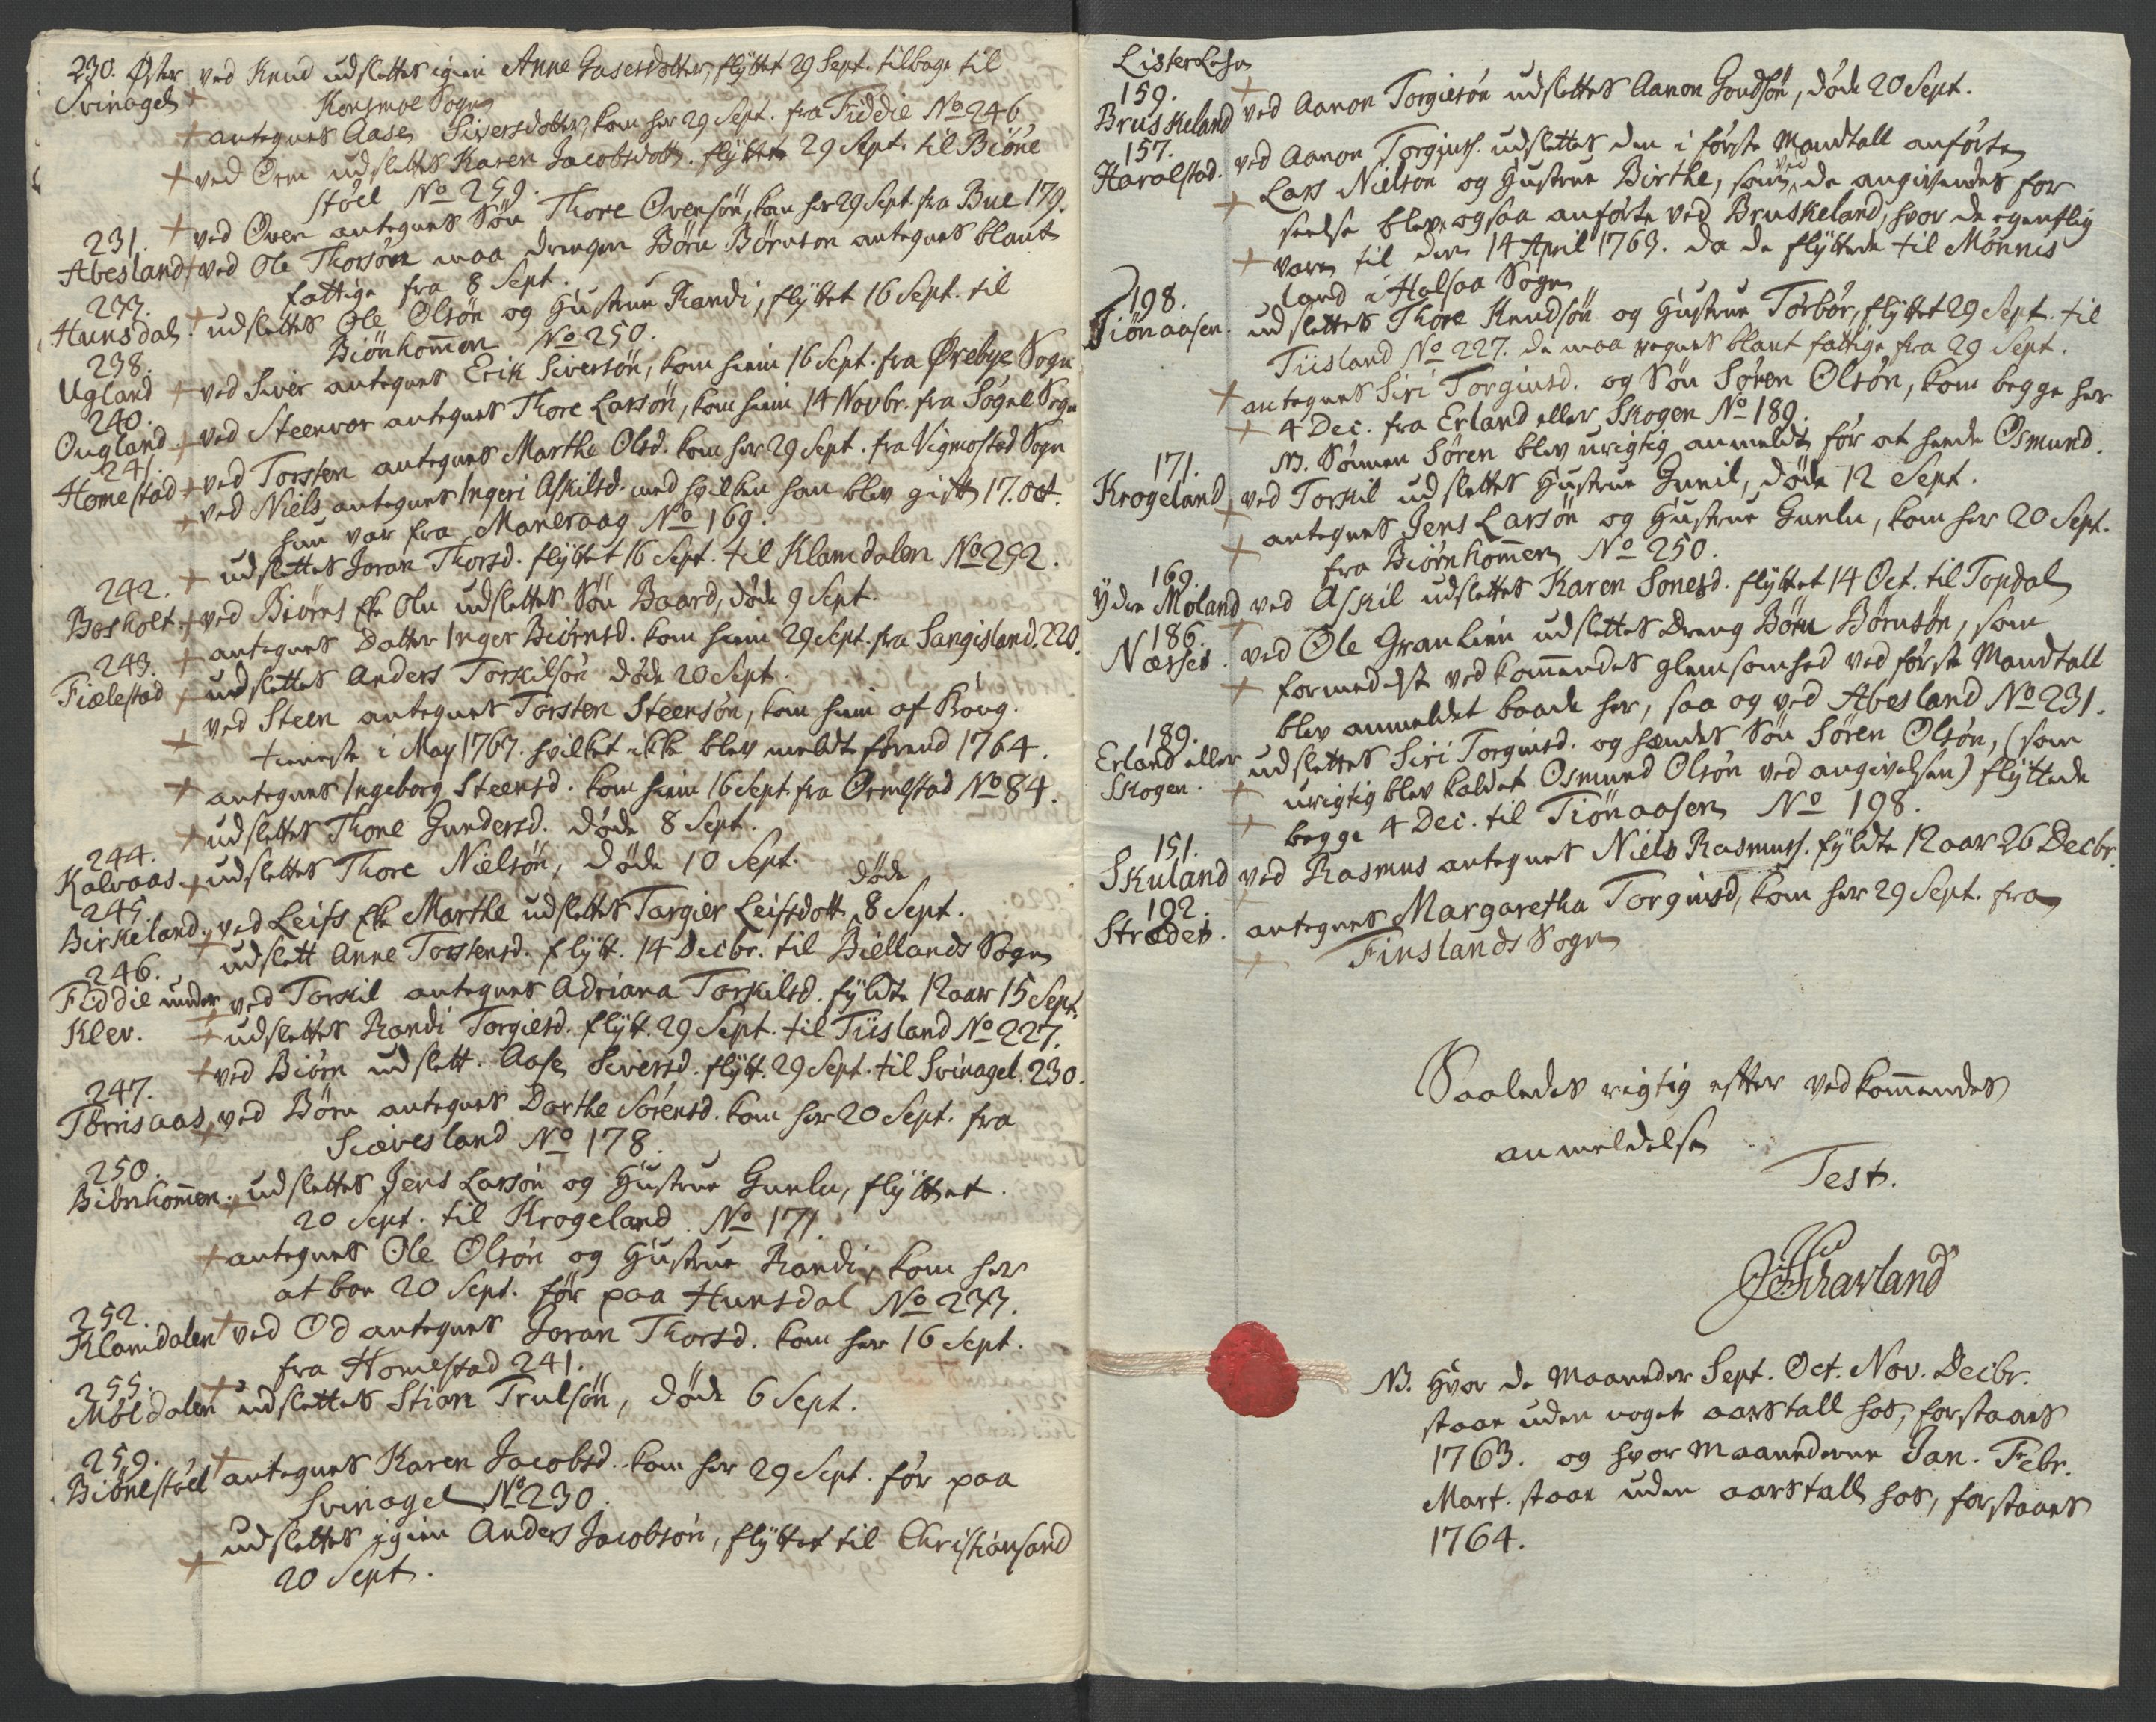 230. Øster ved Knud udslettes igien Anne Gasesdotter, flyttet 29 Sept. tilbage til
Svinagel Konsmoe Sogn
antegnes Aase Siversdotter, kom her 29 Sept. fra Fiddie No 246
ved Orm udslettes Karen Jacobsdott. flyttet 29 Sept. til Biöne
stöel No 259.
ved Oven antegnes Sön Thore Ovensön, kom her 29 Sept. fra Bue 179.
231.
Abesland ved Ole Thorsön maa drengen Börn Börnson antegnes blant
fattige fra 8 Sept.
233.
Hunsdal. udslettes Ole Olsön og Hustrue Randi, flyttet 16 Sept. til
Biönhommen No 250.
238.
Ugland ved Siver antegnes Erik Siversön, kom hiem 16 Sept. fra Ørebye Sogn
240.
Ougland. ved Steenvor antegnes Thore Larsön, kom hiem 14 Novbr. fra Sögne Sogn
241.
Homestad ved Torsten antegnes Marthe Olsd. kom her 29 Sept. fra Vigmostad Sogn
ved Niels antegnes Ingeri Askilsd. med hvilken han blev gift 17. Oct.
hun var fra Maneraag No 169.
udslettes Joran Thorsd. flyttet 16 Sept. til Klamdalen No 252.
242.
Bosholt. ved Biörns Eke Olu udslettes Sön Baard, döde 9 Sept.
antegnes Datter Inger Biörnsd. kom hiem 29 Sept. fra Sangisland. 220.
243.
Fiælestad udslettes Anders Torkilsön döde 20 Sept.
ved Steen antegnes Torsten Steensön, kom hiem af Kong.
tieneste i May 1763. hvilket ikke blev meldt forend 1764.
antegnes Ingeborg Steensd. kom hiem 16 Sept. fra Ormestad No 84.
udslettes Thone Gundersd. döde 8 Sept.
244.
Kalvaas udslettes Thore Nielsön, döde 10 Sept.
245.
Birkeland. ved Leifs Eke Marthe udslettes Targier Leifsdott. döde 8 Sept.
udslett Anne Torstensd. flytt. 14 Decbr. til Biellands Sogn
246.
Fiddie under ved Torkil antegnes Adriana Torkilsd. fyldte 12 aar 15 Sept.
Klev. udslettes Randi Torgiesd. flytt. 29 Sept. til Tiisland No 227.
ved Biörn udslett. Aase Siversd. flytt. 29 Sept. til Svinagel. 230.
247.
Törrisaas ved Börn antegnes Dorthe Sörensd. kom her 20 Sept. fra
Siævesland No 178.
250.
Biönhommen. udslettes Jens Larsön og Hustrue Gunlu, flyttet
20 Sept. til Krogeland No 171.
antegnes Ole Olsön og Hustrue Randi, kom her
at boe 20 Sept. för paa Hunsdal No 233.
252.
Klamdalen ved Od antegnes Joran Thorsd. kom her 16 Sept.
fra Homestad 241.
255.
Möldalen udslettes Stian Trulsön, döde 6 Sept.
259.
Biönestöel antegnes Karen Jacobsd. kom her 29 Sept. för paa
Svinagel No 230.
udslettes igien Anders Jacobsön, flyttet til Christiansand
20 Sept.
Lister Lehn
159.
Bruskeland ved Aanon Torgiesön udslettes Aanon Gondsön, döde 20 Sept.
157.
Haralstad. ved Aanon Torgiuss. udslettes den i förste Mandtall anförte
Lars Nielson og Hustrue Birthe, som ved de angivendes for
seelse blev ogsaa anförte ved Bruskeland, hvor de egentlig
vare til den 14 April 1763. da de flyttede til Mönnis
land i Halsaa Sogn
198.
Tiönaasen. udslettes Thore Knudsön og Hustrue Torbör, flyttet 29 Sept. til
Tiisland No 227. de maa regnes blant fattige fra 29 Sept.
antegnes Siri Torgiusd. og Sön Sören Olsön, kom begge her
4 Dec. fra Erland eller Skogen No 189.
NB. Sönnen Sören blev urigtig anmeldt för at heede Osmund.
171.
Krogeland ved Torkil udslettes Hustrue Gunil, döde 12 Sept.
antegnes Jens Larsön og Hustrue Gunlu, kom her 20 Sept.
fra Biörnhommen No 250.
169.
Ydre Møland ved Askil udslettes Karen Sonesd. flyttet 14 Oct. til Topdal
186.
Næsset. ved Ole Granlien udslettes Dreng Börn Börnsön, som
formedelst vedkommendes glemsomhed ved förste Mandtall
blev anmeldet baade her, saa og ved Abesland No 231.
189.
Erland eller udslettes Siri Torgiusd. og hendes Sön Sören Olsön, (som
Skogen. urigtig blev kaldet Osmund Olsön ved angivelsen) flyttede
begge 4 Dec. til Tiönaasen No 198.
151.
Skuland ved Rasmus antegnes Niels Rasmuss. fyldte 12 aar 26 Decbr.
192.
Strædet. antegnes Margaretha Torgiusd, kom her 29 Sept. fra
Finslands Sogn
Saaledes rigtig efter vedkommendes
anmeldelse
Test.
NB. Hvor de Maaneder Sept. Oct. Nov. Decbr.
staar uden noget aarstall hos, forstaaes
1763. og hvor Maanederne Jan. Febr.
Mart. staar uden aarstall hos, forstaaes
1764.